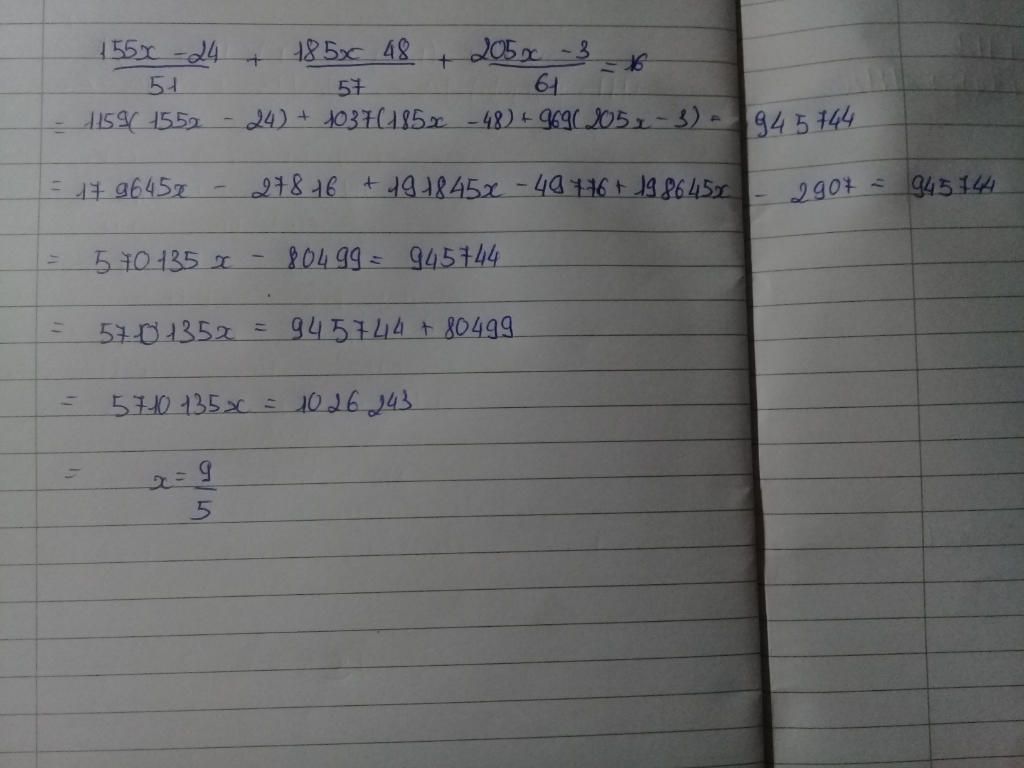 155x - 24 / 51 + 185x 48 / 57 + 205x - 3 / 61 = 16
= 1159(155x - 24) + 1037(185x - 48) + 969(205x - 3) = 945744
= 179645x - 27816 + 191845x - 49776 + 198645x - 2907 = 945744
= 570135x - 80499 = 945744
= 570135x = 945744 + 80499
= 570135x = 1026243
= x = 9/5